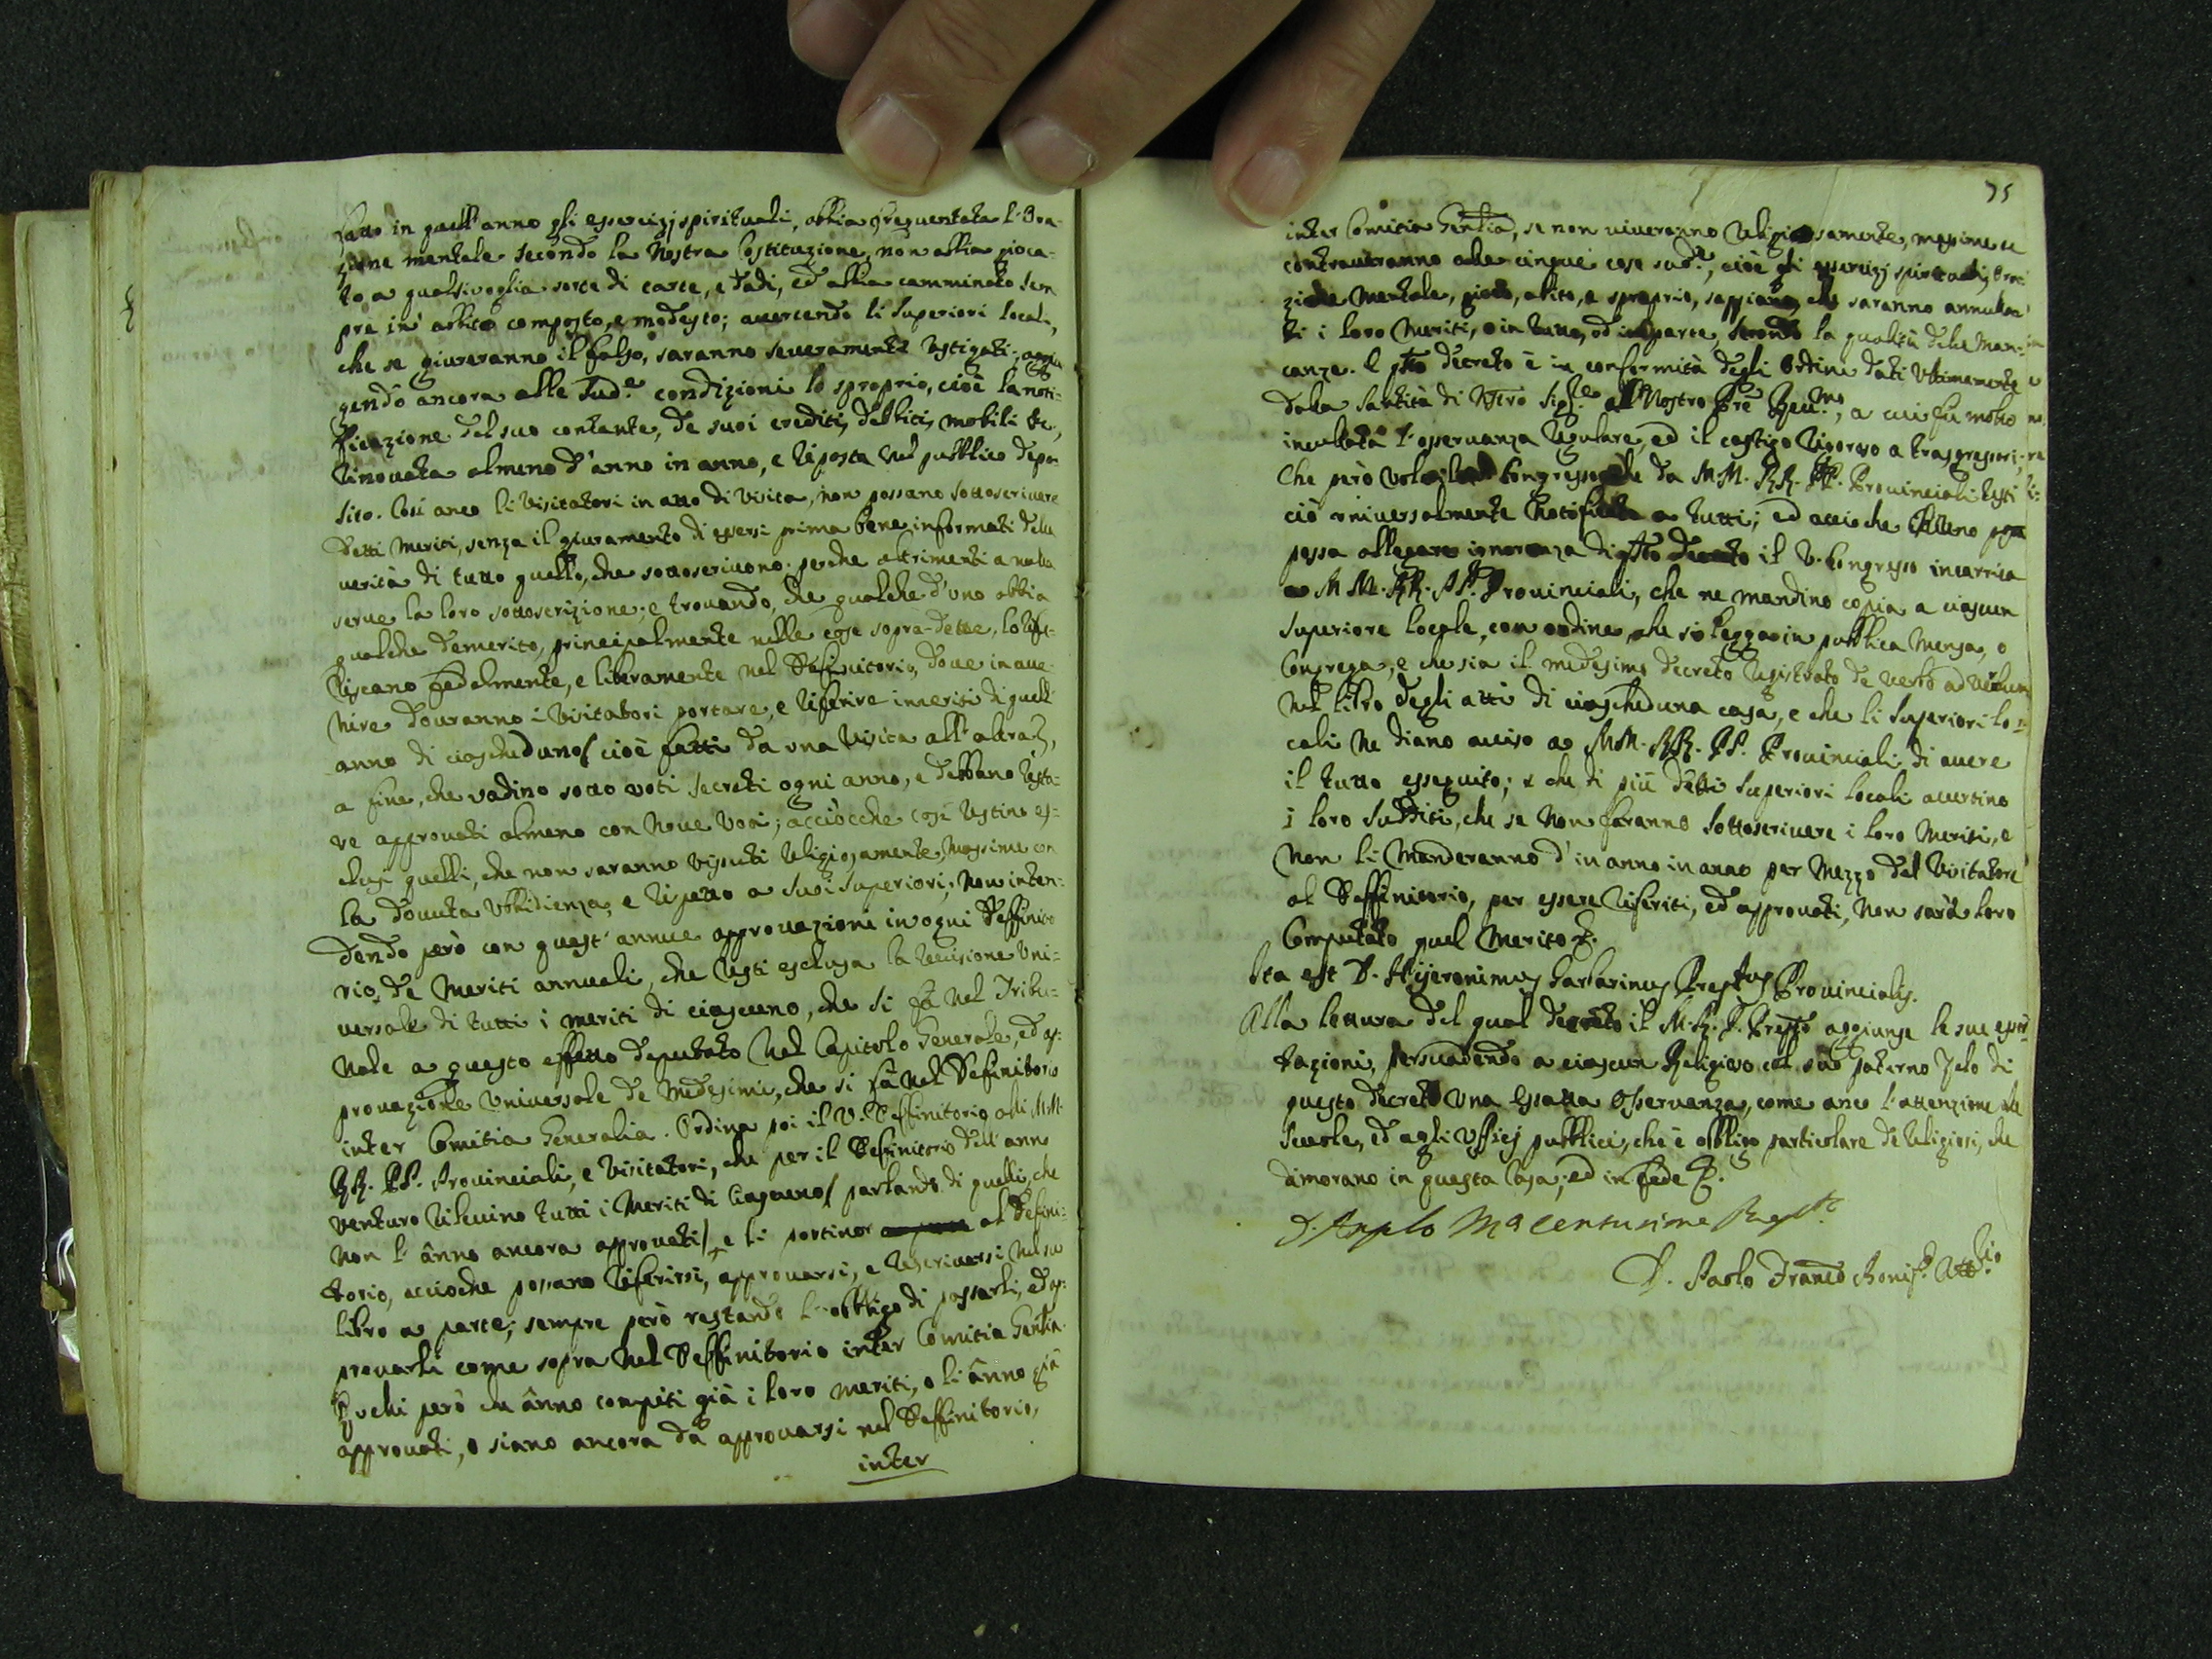 fatto in quell'anno gli essercizj spirituali, abbia frequentata l'Ora-
zione mentale secondo la Nostra Costituzione, non abbia gioca-
to a qualsivoglia sorte di carte, e dadi, ed abbia camminato sem
pre in abito composto, e modesto; avertendo li Superiori locali,
che se giureranno il falso, saranno severamente castigati; aggiu
gendo ancora alle sud.e condizioni lo sproprio, cioè la noti-
ficazione del suo contante, de suoi crediti, debbiti, mobili &c,
rinovata almeno d'anno in anno, e riposta nel pubblico depo-
sito. Così anco li Visitatori in atto di Visita, non possano sottoscrivere
detti Meriti, senza il giuramento di essersi prima bene informati della
verità di tutto quello, che sottoscrivono. perche altrimenti a nulla
serve la loro sottoscrizione; e trovando, che qualche d'uno abbia
qualche demerito, principalmente nelle cose sopra-dette, lo rife-
riscano fedelmente, e liberamente nel Deffinitorio, dove inave-
nire dovranno i Visitatori portare, e riferire i meriti di quell'
anno di ciascheduno/ cioè fatti da una Visita all'altra/,
a fine, che vadino sotto voti secreti ogni anno, e debbano resta-
re approvati almeno con Nove Voti; acciòcche così restino es-
clusi quelli, che non saranno vissuti religiosamente, massime con
la dovuta Ubbidienza, e rispetto a suoi Superiori; Non inten-
dendo però con quest'annue approvazioni in ogni Deffinito
rio, de Meriti annuali, che resti esclusa la revisione Uni-
versale di tutti i meriti di ciascuno, che si fà nel Tribu-
nale a questo effetto deputato Nel Capitolo Generale, ed ap-
provazione Universale de Medesimi, che si fà nel Definitorio
inter Comitia Generalia. Ordina poi il V. Deffinitorio alli MM.
RR. PP. Provinciali, e Visitatori, che per il Definitorio dell'anno
venturo rilevino tutti i Meriti di Ciascuno/ parlando di quelli, che
non l'ânno ancora approvati/, e li portino al Defini-
torio, accioche possano riferirsi, approvarsi, e rescriversi nel suo
libro a parte; sempre però restando l'obbligo di passarli, ed ap-
provarli come sopra Nel Deffinitorio inter Comitia Gen̄lia.
Quelli però che ânno compiti già i loro meriti, o li ânno già
approvati, o siano ancora da approvarsi nel Deffinitorio,
inter
75
inter Comitia Gen̄lia, se non viveranno Religiosamente, massime se
contraverranno alle cinque cose sud.e, cioè gli essercizj spirituali, ora
zione Mentale, gioco, abito, e sproprio, sappiano, che saranno annulla
ti i loro Meriti, o in tutto, od in parte, secondo la qualità delle Man-
canze. E pñte decreto è in conformità degli Ordine dati Ultimamente
dalla Santità di Nr̃o Sig.re al Nostro Pr̃e Gen.le, a cui fu molto
inculcata l'osservanza regolare, ed il castigo rigoroso a trasgressori;
Che però vol il Congresso che da M.M. RR. PP. Provinciali resti
ciò universalmente Notificato a tutti; ed accio che Niuno
possa allegare ignoranza di pñte decreto il V. Congresso incarrica
a MM. RR. PP. Provinciali, che ne mandino copia a ciascun
Superiore locale, con ordine, che si legga in pubblica Mensa, o
Congrega, e che sia il medesimo decreto registrato de verbo ad verbum
nel libro degli atti di ciascheduna casa, e che li Superiori lo-
cali Ne diano aviso a MM. RR. PP. Provinciali di avere
il tutto essequito; e che di più detti Superiori locali avertino
i loro sudditi, che se non faranno sottoscrivere i loro Meriti, e
non li Manderanno d'in anno in anno per Mezzo del Visitatore
al Deffinitorio, per essere riferiti, ed approvati, non sarà loro
Computato quel Merito &.
Ita est D. Hijeronimus Garbarinus Præptus Provincialis.
Alla lettura del qual decreto il M.R.P. Prepto aggiunse le sue essor
tazioni, persuadendo a ciascun Religioso col suo paterno zelo di
questo decreto una essatta osservanza, come anco l'attenzione alle
Scuole, ed agli Ufficj pubblici, che è obbligo particolare de Religiosi, che
dimorano in questa Casa; ed in fede &.
D. Angelo M.a Centurione Prep.to
D. Paolo Franco Bonif.o Att.rio